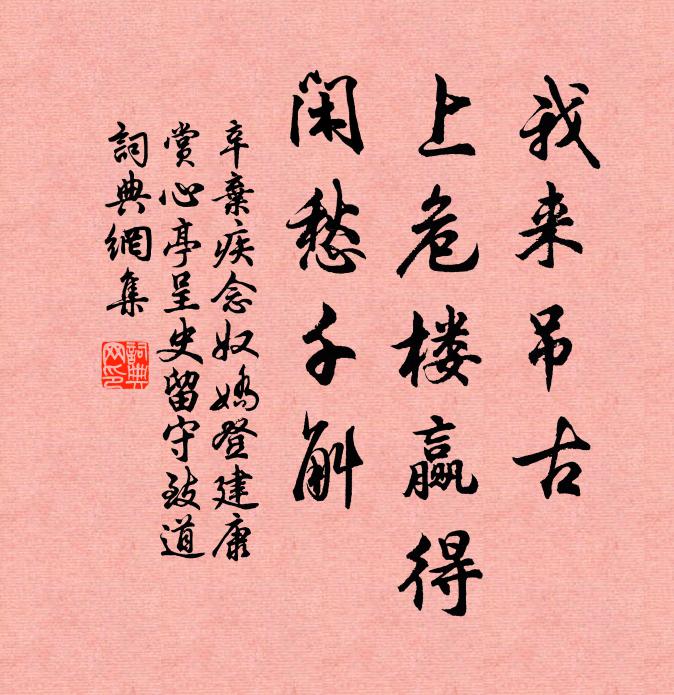 我来吊古
上危楼赢得
闲愁千斛
辛棄疾念奴嬌登建康
賞心亭呈史留守致道
詞典網集
詞典網印